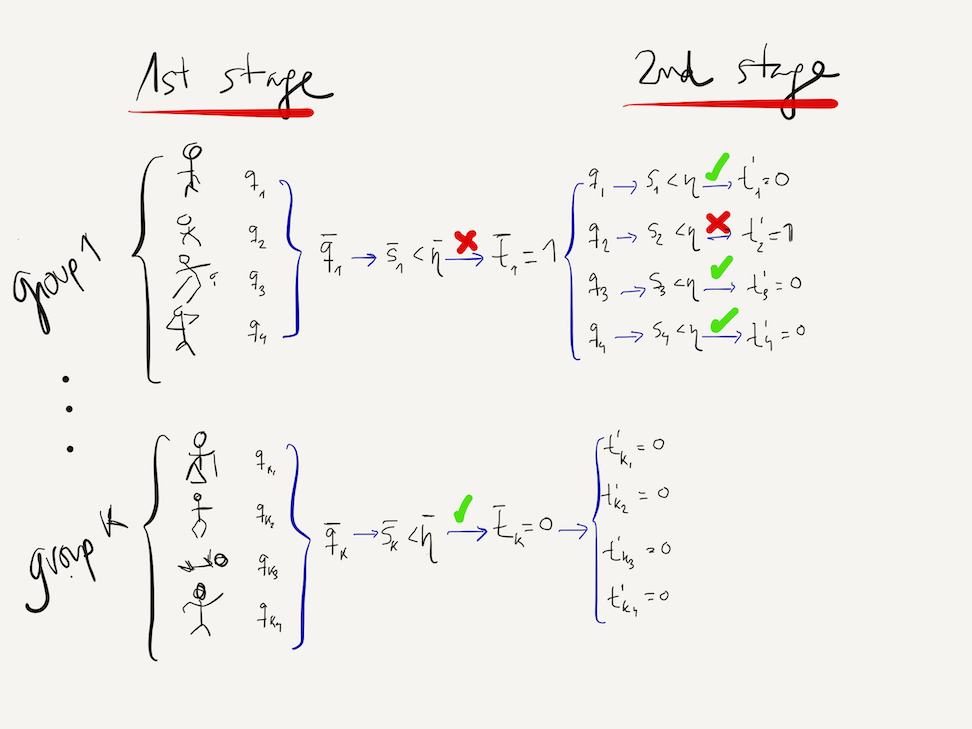 1st stage
2nd stage
group 1
q₁
q₂
q₃
q₄
q̄₁ → s̄₁ < η̄ ❌→ t̄₁ = 1
q₁ → s₁ < η ✓→ t'₁ = 0
q₂ → s₂ < η ❌→ t'₂ = 1
q₃ → s₃ < η ✓→ t'₃ = 0
q₄ → s₄ < η ✓→ t'₄ = 0
group K
qₖ₁
qₖ₂
qₖ₃
qₖ₄
q̄ₖ → s̄ₖ < η̄ ✓→ t̄ₖ = 0 →
t'ₖ₁ = 0
t'ₖ₂ = 0
t'ₖ₃ = 0
t'ₖ₄ = 0